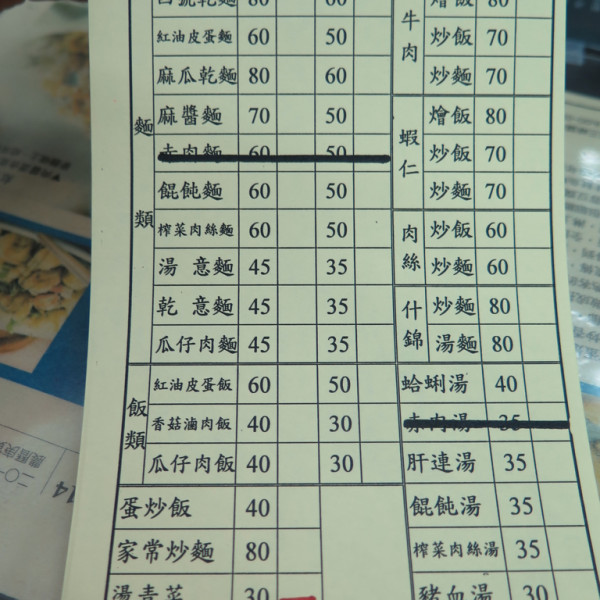 麵類
紅油皮蛋麵 60 50
麻瓜乾麵 80 60
麻醬麵 70 50
赤肉麵 60 50
餛飩麵 60 50
榨菜肉絲麵 60 50
湯 意麵 45 35
乾 意麵 45 35
瓜仔肉麵 45 35
飯類
紅油皮蛋飯 60 50
香菇滷肉飯 40 30
瓜仔肉飯 40 30
蛋炒飯 40
家常炒麵 80
湯青菜 30
牛肉
燴飯 80
炒飯 70
炒麵 70
蝦仁
燴飯 80
炒飯 70
炒麵 70
肉絲
炒飯 60
炒麵 60
什錦
炒麵 80
湯麵 80
蛤蜊湯 40
赤肉湯 35
肝連湯 35
餛飩湯 35
榨菜肉絲湯 35
豬血湯 30